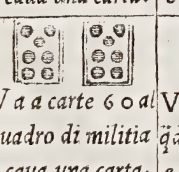 caua una carta.
V a a carte 60 al
uadro di militia
caua una carta.